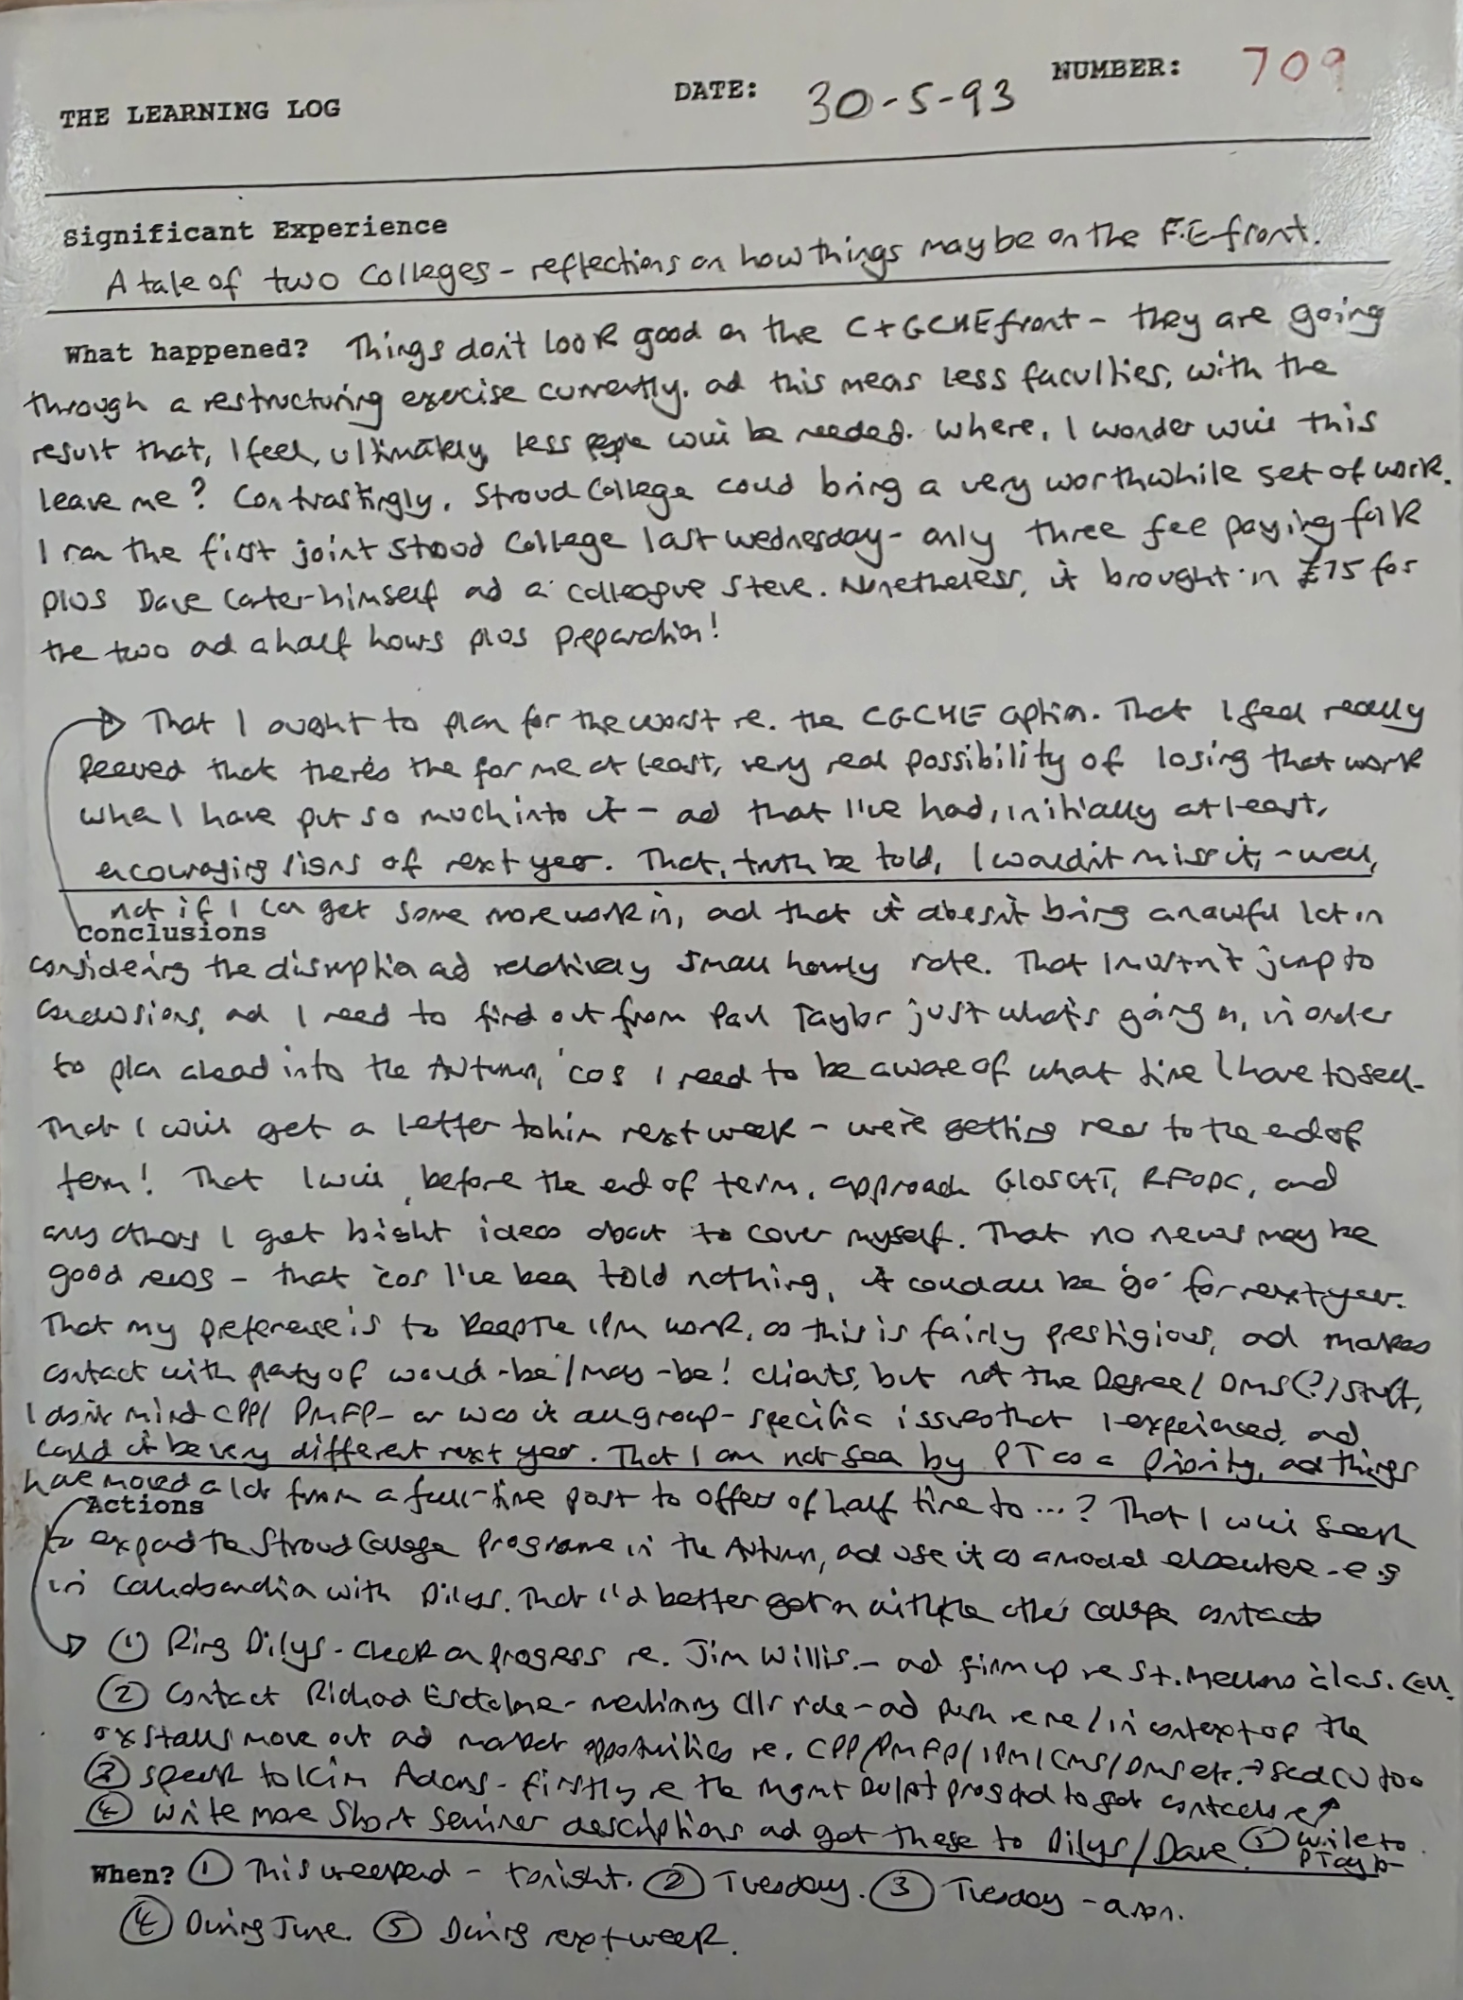 THE LEARNING LOG DATE: 30-5-93 NUMBER: 709
Significant Experience
A tale of two Colleges - reflections on how things may be on the F.E front.
What happened? Things don't look good on the C+GCHE front - they are going
through a restructuring exercise currently, and this means less faculties, with the
result that, I feel, ultimately, less people will be needed. Where, I wonder will this
leave me? Contrastingly, Stroud College could bring a very worthwhile set of work.
I ran the first joint Stroud College last wednesday - only three fee paying folk
plus Dave Carter himself and a colleague Steve. Nonetheless, it brought in £75 for
the two and a half hours plus preparation!
That I ought to plan for the worst re. the CGCHE option. That I feel really
peeved that there's the for me at least, very real possibility of losing that work
when I have put so much into it - and that I've had, initially at least,
encouraging signs of next year. That, truth be told, I wouldn't miss it, - well,
not if I can get some more work in, and that it doesn't bring an awful lot in
Conclusions
considering the disruption and relatively small hourly rate. That I mustn't jump to
conclusions, and I need to find out from Paul Taylor just what's going on, in order
to plan ahead into the Autumn, 'cos I need to be aware of what time I have to sell.
That I will get a letter to him next week - we're getting near to the end of
term! That I will, before the end of term, approach GLOSCAT, RFODC, and
any others I get bright ideas about to cover myself. That no news may be
good news - that 'cos I've been told nothing, it could all be 'go' for next year.
That my preference is to keep the IPM work, as this is fairly prestigious, and makes
contact with plenty of would-be/may-be! clients, but not the Degree/DMS(?) stuff,
I don't mind CPP/PMFP - or was it all group-specific issues that I experienced, and
could it be very different next year. That I am not seen by PT as a priority, and things
have moved a lot from a full-time post to offers of half time to ...? That I will seek
Actions
to expand the Stroud College programme in the Autumn, and use it as a model elsewhere - e.g
in collaboration with Dilys. That I'd better get on with the other college contacts
① Ring Dilys - check on progress re. Jim Willis. - and firm up re St. Mellons
② Contact Richard - mentioning role - and push re me/in context of the
Oxstalls move out and market opportunities re. CPP/PMFP/IPM/CMS/DMS etc. → send CV too
③ Speak to Kim Adams - firstly re the Mgmt Dvlpt prog and to get contacts re ↗
④ Write more short seminar descriptions and get these to Dilys/Dave ⑤ Write to
P Taylor
When? ① This weekend - tonight. ② Tuesday. ③ Tuesday - a.m.
④ During June. ⑤ During next week.